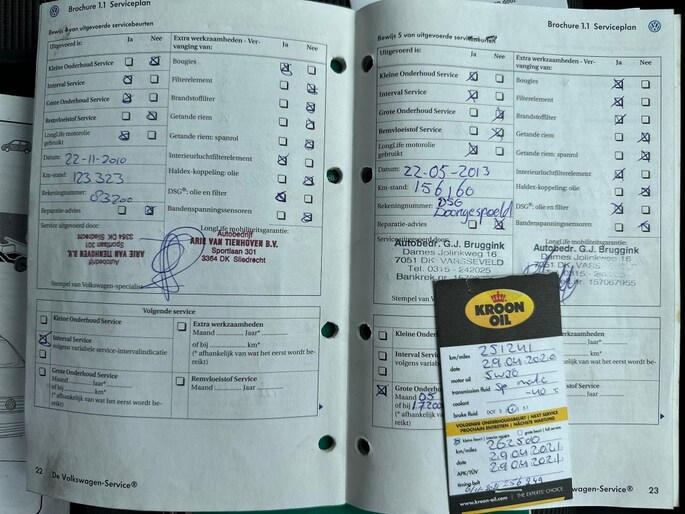 Brochure 1.1 Serviceplan
Bewijs 4 van uitgevoerde servicebeurten
Uitgevoerd is: Ja Nee
Kleine Onderhoud Service
Interval Service
Grote Onderhoud Service
Remvloeistof Service
LongLife motorolie gebruikt
Datum: 22-11-2010
Km-stand: 123.323
Rekeningnummer: 83200
Reparatie-advies
Service uitgevoerd door:
Extra werkzaamheden - Ver-
vanging van: Ja Nee
Bougies
Filterelement
Brandstoffilter
Getande riem
Getande riem: spanrol
Interieurluchtfilterelement
Haldex-koppeling: olie
DSG®: olie en filter
Bandenspanningssensoren
LongLife mobiliteitsgarantie:
Autobedrijf
ARIE VAN TIENHOVEN B.V.
Sportlaan 301
3364 DK Sliedrecht
Autobedrijf
ARIE VAN TIENHOVEN B.V.
Sportlaan 301
3364 DK Sliedrecht
Stempel van Volkswagen-specialist
Volgende service
Kleine Onderhoud Service
Interval Service
volgens variabele service-intervalindicatie
Grote Onderhoud Service
Maand Jaar*
of bij km*
(* afhankelijk van wat het eerst wordt be-
reikt)
Extra werkzaamheden
Maand Jaar*
of bij km*
(* afhankelijk van wat het eerst wordt be-
reikt)
Remvloeistof Service
Maand Jaar
22 De Volkswagen-Service®
Brochure 1.1 Serviceplan
Bewijs 5 van uitgevoerde servicebeurten
Uitgevoerd is: Ja Nee
Kleine Onderhoud Service
Interval Service
Grote Onderhoud Service
Remvloeistof Service
LongLife motorolie gebruikt
Datum: 22-05-2013
Km-stand: 156160
Rekeningnummer: DSG
Doorgespoeld
Reparatie-advies
Extra werkzaamheden - Ver-
vanging van: Ja Nee
Bougies
Filterelement
Brandstoffilter
Getande riem
Getande riem: spanrol
Interieurluchtfilterelement
Haldex-koppeling: olie
DSG®: olie en filter
Bandenspanningssensoren
LongLife mobiliteitsgarantie:
Autobedr. G.J. Bruggink
Dames Jolinkweg 16
7051 DK VARSSEVELD
Tel. 0315 - 242025
Bankrek.nr.
Autobedr. G.J. Bruggink
Dames Jolinkweg 16
7051 DK VARS
157067955
Stempel van
Kleine O
Interval
volgens varia
Grote Onde
Maand 05
of bij
(* afhankelijk
reikt)
KROON
OIL
km/miles 251241
date 29.04.2020
motor oil 5W30
transmission fluid
coolant -40
brake fluid DOT
VOLGENDE ONDERHOUDSBEURT | NEXT SERVICE
PROCHAIN ENTRETIEN | NÄCHSTE WARTUNG
km/miles 262500
date 29.04.2021
APK/TÜV 29.04.2021
timing belt
256949
www.kroon-oil.com | THE EXPERTS' CHOICE
Service® 23